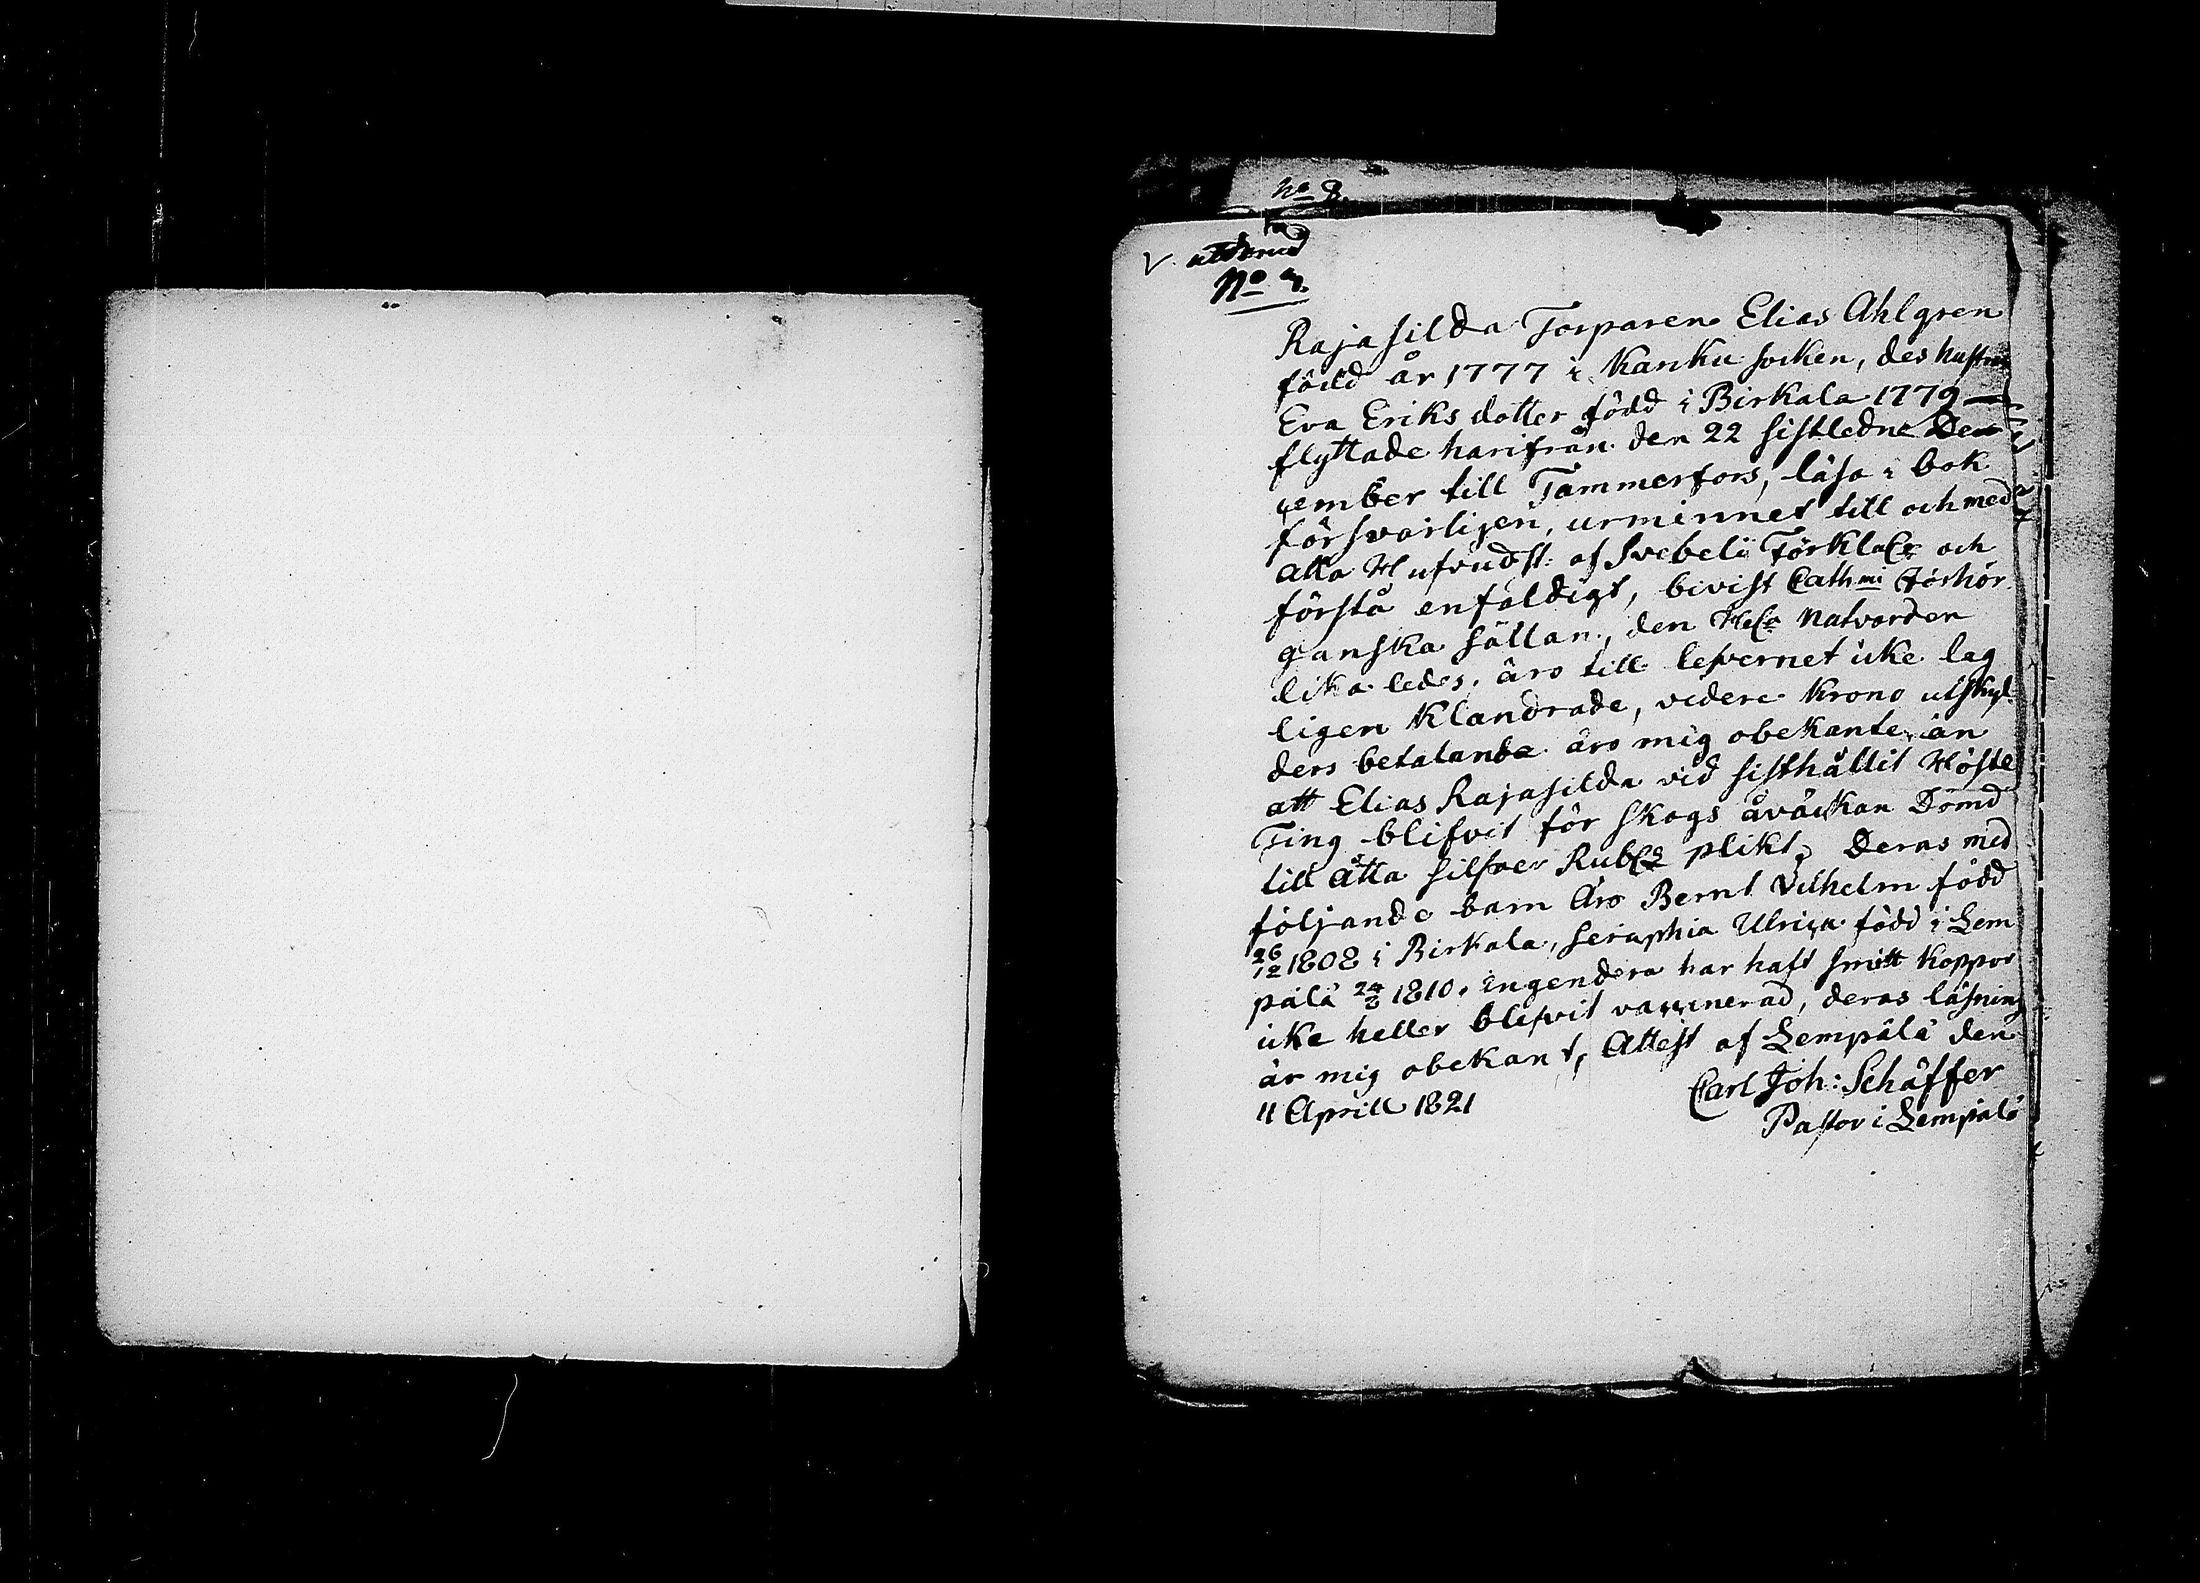 No 8.
No 7.
Rajasilda Torparen Elias Ahlgren
född år 1777 i Karku socken, des hustru
Eva Eriks dotter född i Birkala 1779
flyttade härifrån den 22 sistledne De
cember till Tammerfors, läsa i bok
försvarligen, urminnet till och med
atta Hufvudst: af Svebelii Förkla och
förstå enfaldigt, bivist Cathmi förhör
ganska sällan, den Natvarden
lika ledes, äro till lefvernet icke lag
ligen klandrade, videre Krono utskyl
ders betalande äro mig obekante, än
att Elias Rajasilda vid sisthållit Höste
Ting blifvit för skogs åvärkan Dömd
till åtta silfver Rub plikt, Deras med
följande barn äro Bernt Vilhelm född
26/12 1808 i Birkala, Seraphia Ulrica född i Lem
pälä 24/8 1810. ingendera har haft smitt koppor
icke heller blifvit vaccinerad, deras läsning
är mig obekant, Attest af Lempälä den
11 Aprill 1821
Carl Joh: Schäffer
Pastor i Lempälä